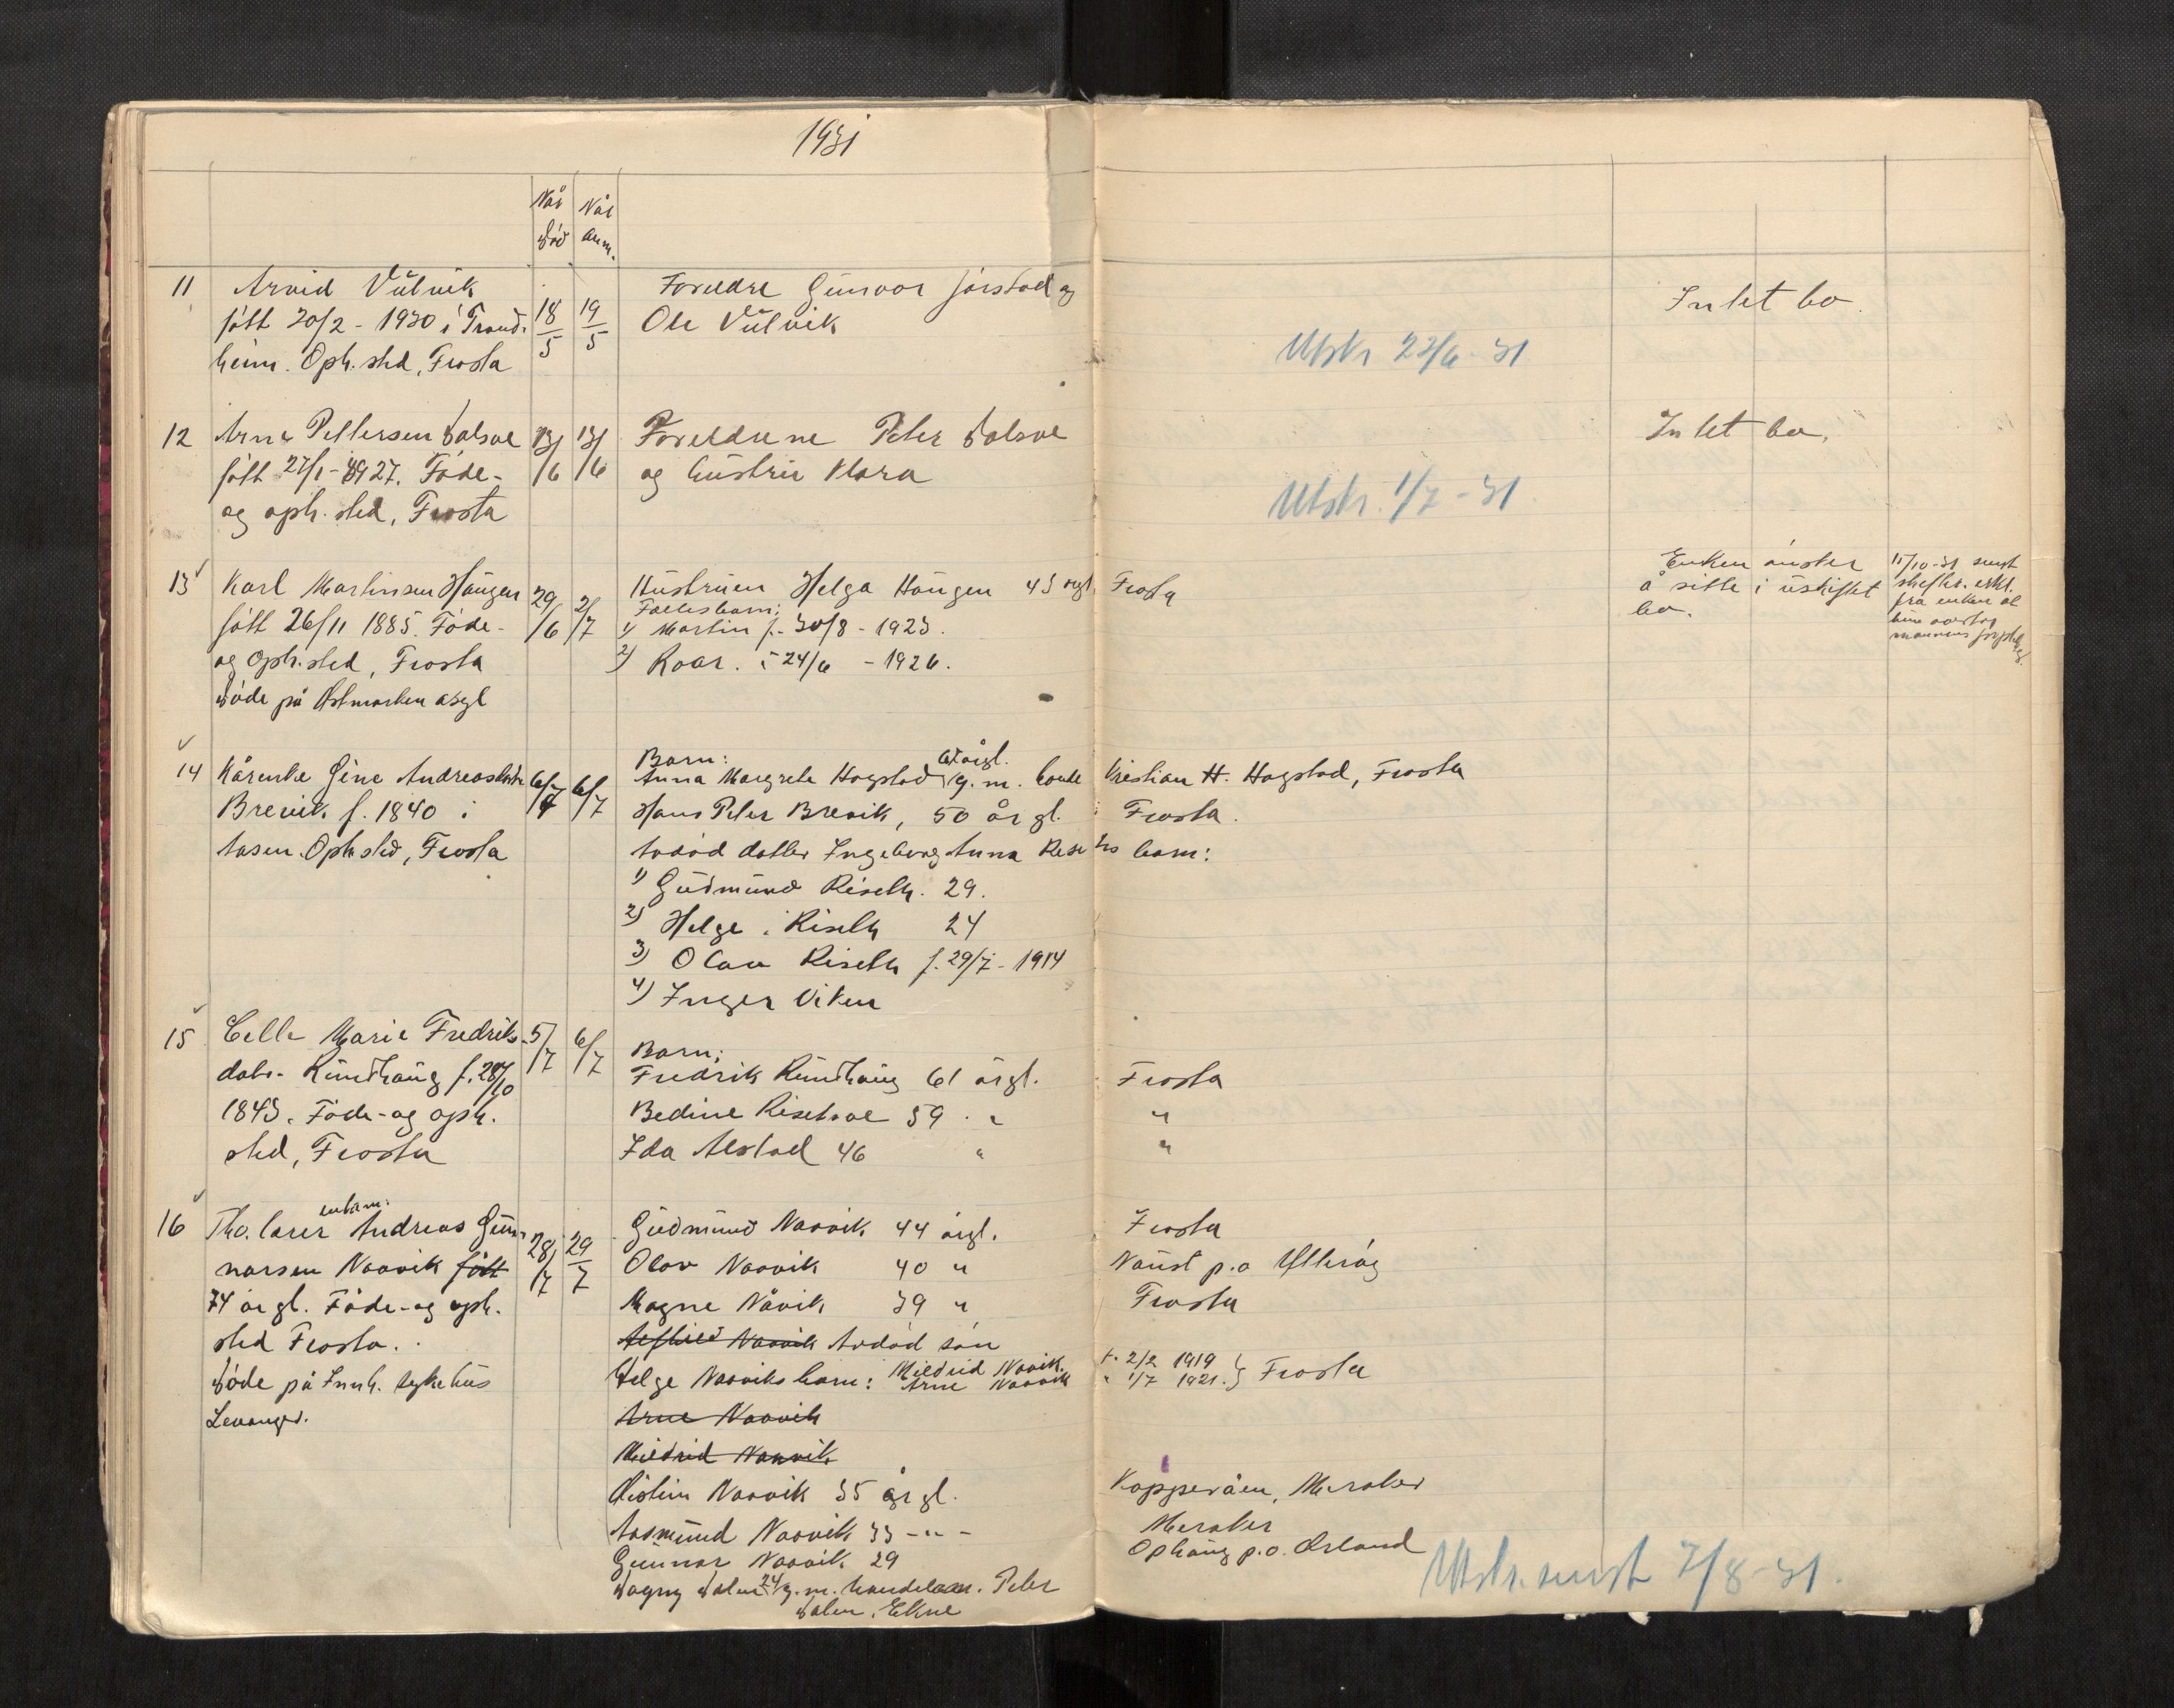 1931
Når død
Når anm.
11 Arvid Vulvik
født 20/2 - 1930 i Trond-
heim. Oph. sted, Frosta
18/5 19/5
Foreldre Gunvor Jørstad og
Ole Vulvik
Utskr 22/6 - 31
Intet bo.
12 Arne Pettersen Dalsve
født 27/1 - 1927. Føde-
og oph. sted, Frosta
13/6 13/6
Foreldrene Peter Dalsve
og hustru Klara
Utskr. 1/7 - 31
Intet bo.
13 Karl Martinsen Haugen
født 26/11 1885. Føde-
og oph. sted, Frosta
Døde på Østmarken asyl
29/6 2/7
Hustruen Helga Haugen 43 årgl. Frosta
Fællesbarn:
1) Martin f. 30/8 - 1923.
2) Roar. " 24/6 - 1926.
Enken ønsker
å sitte i uskiftet
bo.
11/10-31 sendt
fra enken at
mannens
14 Kårenke Gine Andreasdatter
Brevik f. 1840 i
Åsen. Oph. sted, Frosta
6/7 6/7
Barn:
Anna Margrete Hogstad årgl. g. m. bonde Kristian H. Hogstad, Frosta
Hans Peter Brevik, 50 år gl. Frosta.
Avdød datter Ingeborg Anna Riseths barn:
1) Gudmund Riseth. 29.
2) Helge Riseth 24
3) Olav Riseth f. 29/7 - 1914
4) Inger Viken
15 Marie Fredriks-
datr. Rundhaug f. 28/10
1843. Føde- og oph.
sted, Frosta
5/7 6/7
Barn:
Fredrik Rundhaug 61 årgl. Frosta
Bedine Risetsve 59 " "
Ida Alstad 46 " "
16 Andreas Gun-
narsen Naavik født
74 årgl. Føde- og oph.
sted Frosta.
Døde på Innh. sykehus
Levanger.
28/7 29/7
Gudmund Naavik 44 årgl. Frosta
Olav Naavik 40 " Naust p.o Ytterøy
Magne Nåvik 39 " Frosta
Naavik Avdød søn
Helge Naaviks barn: Mildrid Naavik f. 2/2 1919
Arne Naavik " 1/7 1921. } Frosta
Arne Naavik
Mildrid Naavik
Øistein Naavik 35 årgl. Kopperåen, Meraker
Aasmund Naavik 33 -"- Meraker
Gunnar Naavik 29 Ophaug p.o. Ørland
Dagny Dalen 24 g. m. handelsm. Peter
Dalen, Ekne
Utskr. sendt 7/8 - 31.